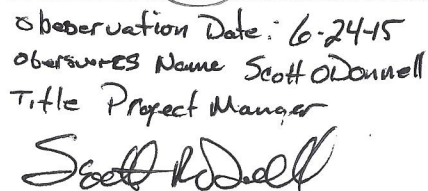 Obeservation Date: 6-24-15
Obersvores Name Scott ODonnell
Title Project Manger
Scott R ODonnell